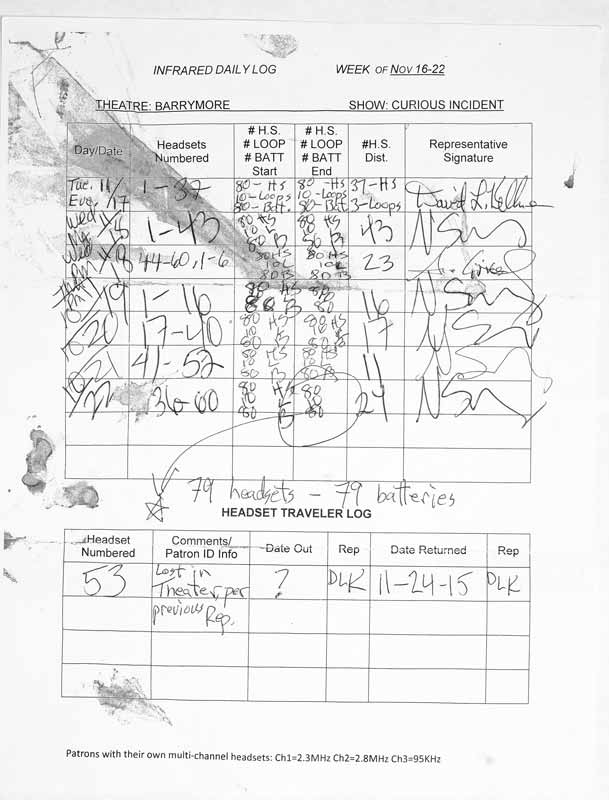 INFRARED DAILY LOG WEEK OF NOV 16-22
THEATRE: BARRYMORE SHOW: CURIOUS INCIDENT
Day/Date
Headsets Numbered
# H.S. # LOOP # BATT Start
# H.S. # LOOP # BATT End
#H.S. Dist.
Representative Signature
Tue. 11/17 Eve. 1-37 80-HS 10-Loops 80-Batt. 80-HS 10-Loops 80-Batt. 37-HS 3-Loops David L. Kellman
Wed 1-43 80 HS 10 L 80 B 80 HS 10 L 80 B 43
Wed 11/18 44-60, 1-6 80HS 10L 80B 80HS 10L 80B 23
11/19 1-16 80 HS 10 L 80 B 80 16
20 17-40 80 HS 10 L 80 B 80 HS 10 L 80 B 17
21 41-52 80 HS 10 L 80 B 80 HS 10 L 80 B 11
22 36-60 80 HS 10 L 80 B 80 10 80 24
79 headsets - 79 batteries
HEADSET TRAVELER LOG
Headset Numbered
Comments/ Patron ID Info
Date Out
Rep
Date Returned
Rep
53 Lost in Theater, per previous Rep. ? DLK 11-24-15 DLK
Patrons with their own multi-channel headsets: Ch1=2.3MHz Ch2=2.8MHz Ch3=95KHz